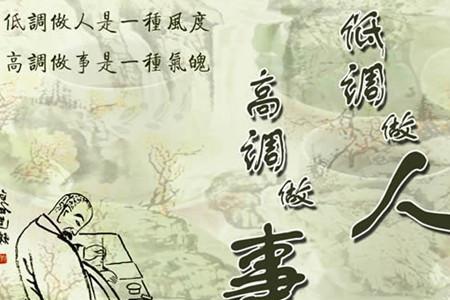 低調做人是一種風度
高調做事是一種氣魄
低調做人
高調做事